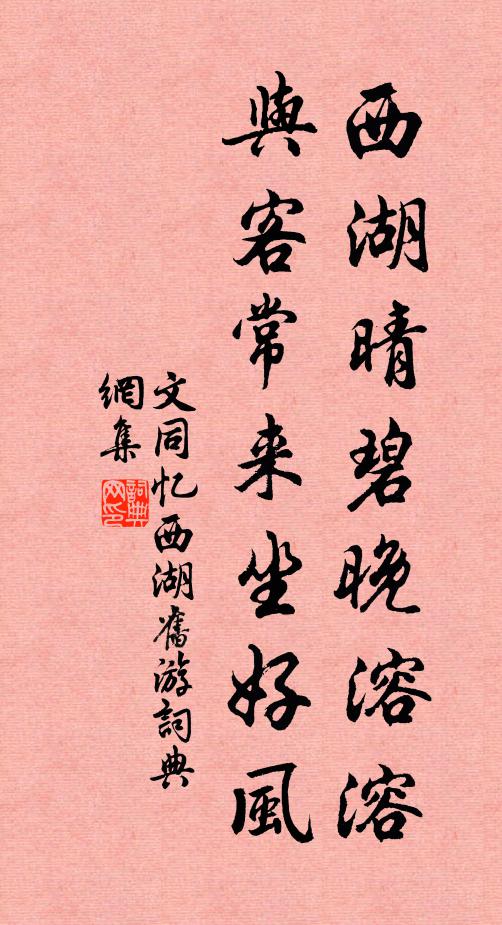 西湖晴碧晚溶溶
與客常来坐好風
文同忆西湖舊游詞典
網集
詞典
网印